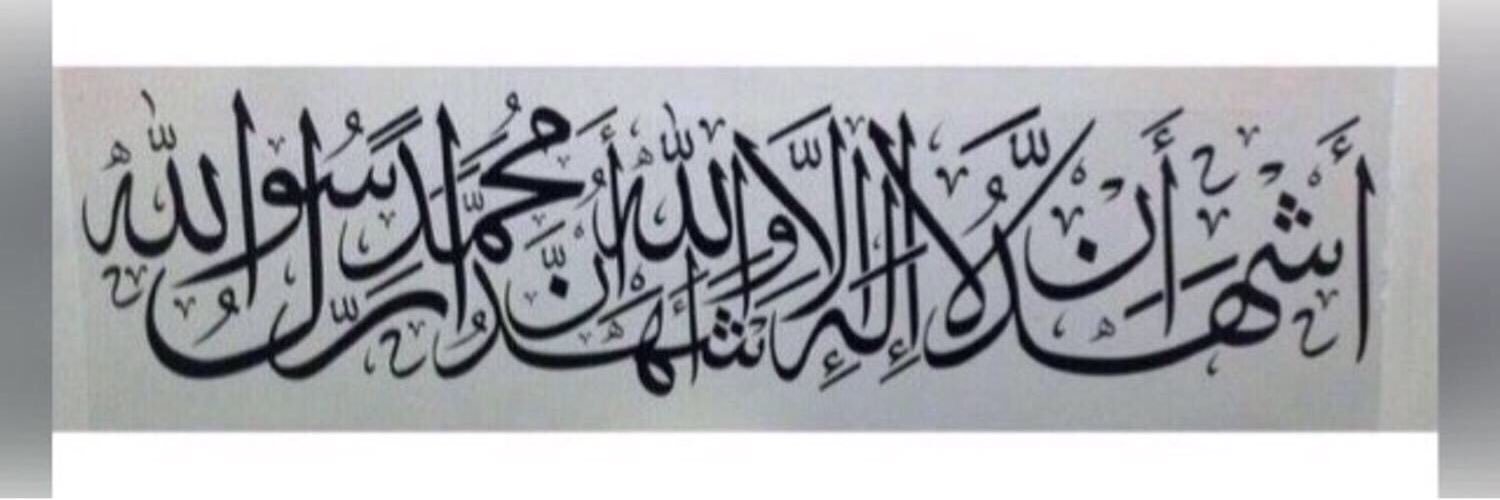 أَشْهَدُ أَنْ لَّا إِلٰهَ إِلَّا اللّٰهُ وَأَشْهَدُ أَنَّ مُحَمَّدًا رَّسُولُ اللّٰهِ